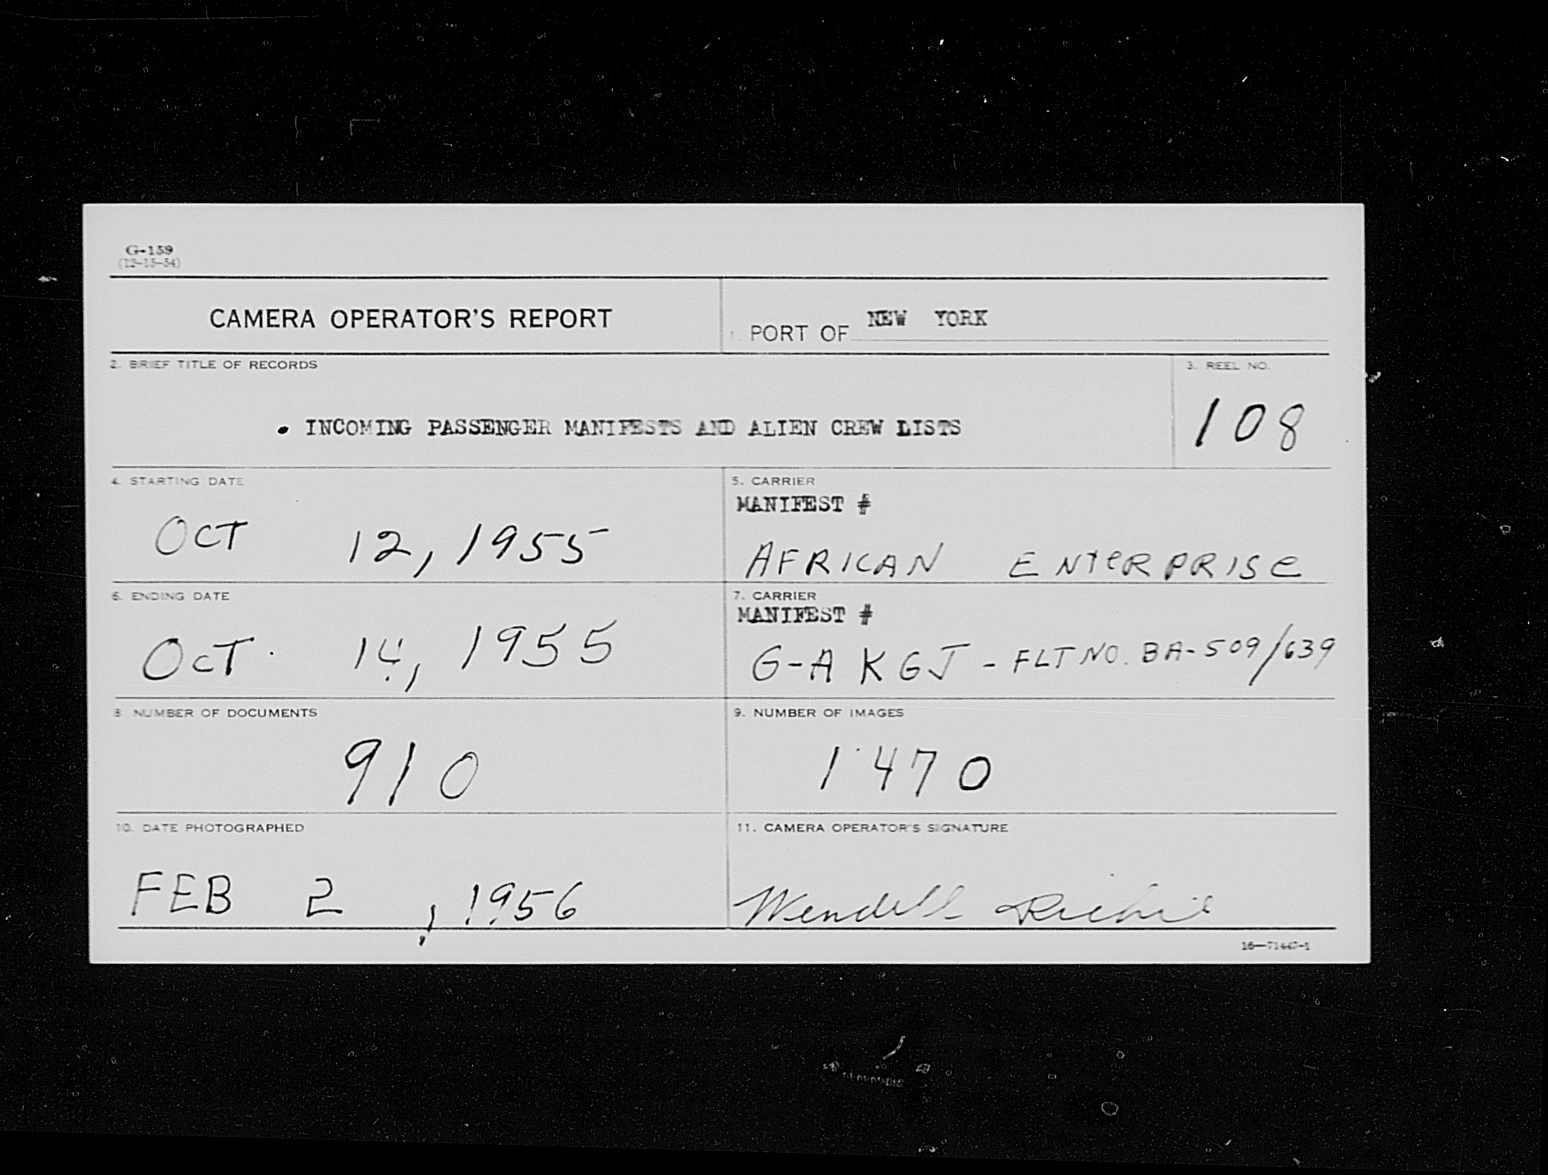 G-159
(12-15-54)
CAMERA OPERATOR'S REPORT
1. PORT OF NEW YORK
2. BRIEF TITLE OF RECORDS
• INCOMING PASSENGER MANIFESTS AND ALIEN CREW LISTS
3. REEL NO.
108
4. STARTING DATE
OCT 12, 1955
5. CARRIER
MANIFEST #
AFRICAN ENTERPRISE
6. ENDING DATE
OCT. 14, 1955
7. CARRIER
MANIFEST #
G-AKGJ - FLT NO. BA-509/639
8. NUMBER OF DOCUMENTS
910
9. NUMBER OF IMAGES
1470
10. DATE PHOTOGRAPHED
FEB 2, 1956
11. CAMERA OPERATOR'S SIGNATURE
Wendell Richie
16—71447-1